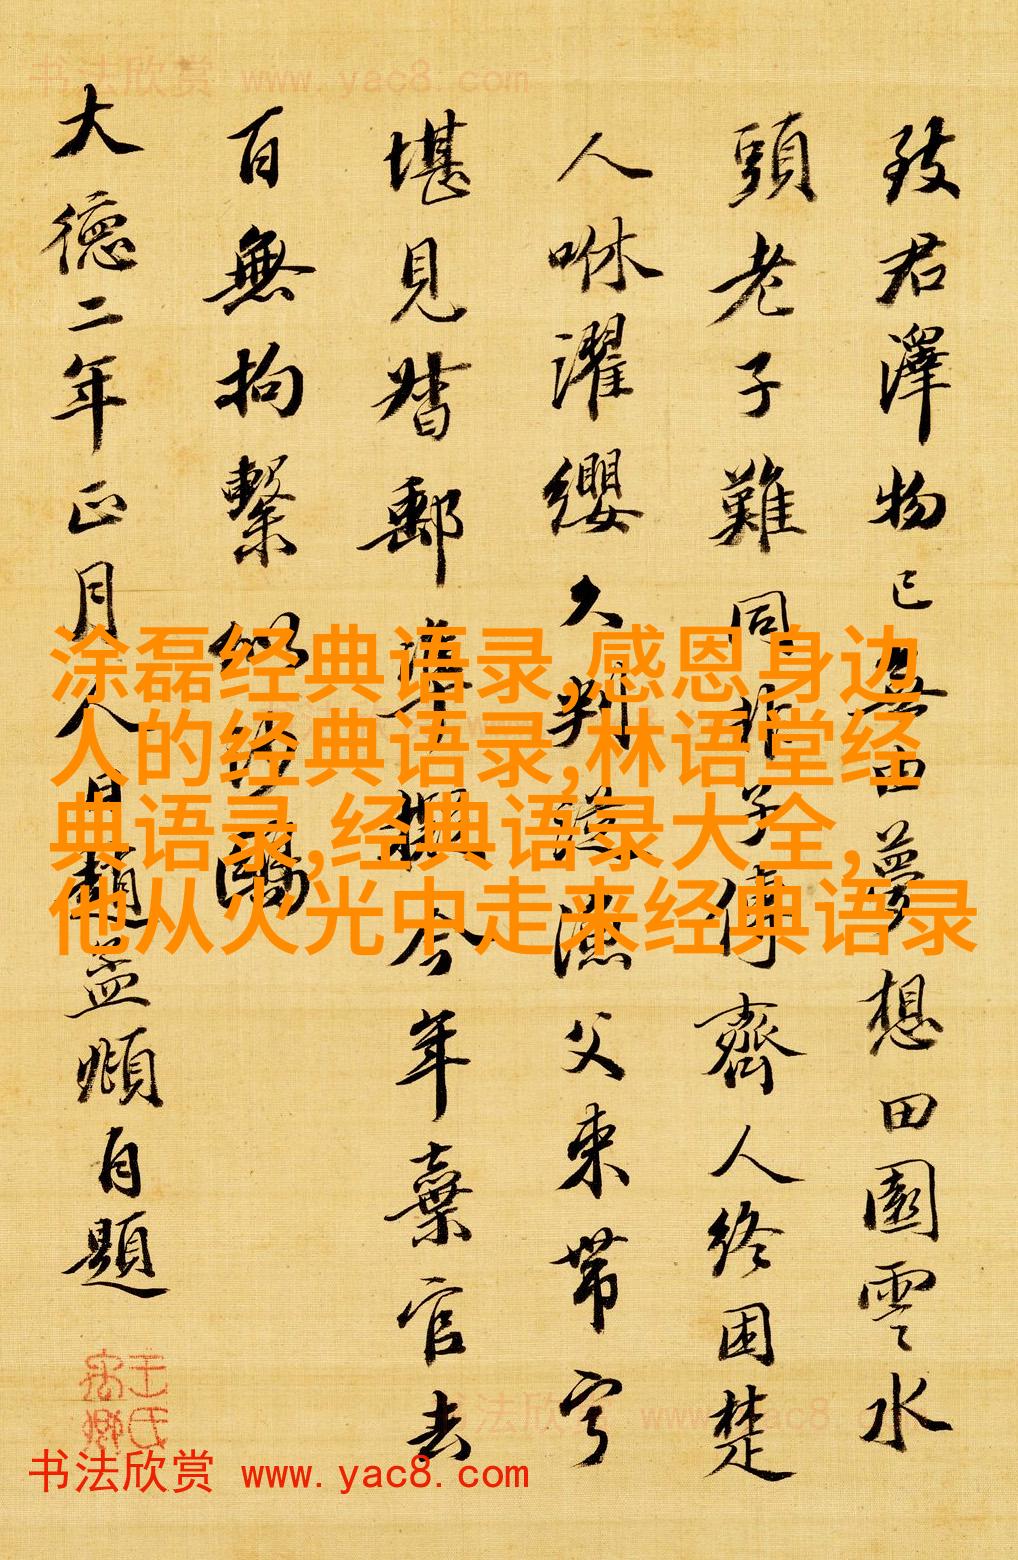 书法欣赏 www.yac8.com
致君澤物已無由夢想田園雲水
頭老子難同非子傳齊人終困楚
人咻濯纓久判從漁父束帶寧
堪見督郵準擬今年棄官去
百無拘繫似沙鷗
大德二年正月人日趙孟頫自題
涂磊经典语录,感恩身边
人的经典语录,林语堂经
典语录,经典语录大全,
他从火光中走来经典语录
书法欣赏 www.yac8.com
书法欣赏 www.yac8.com